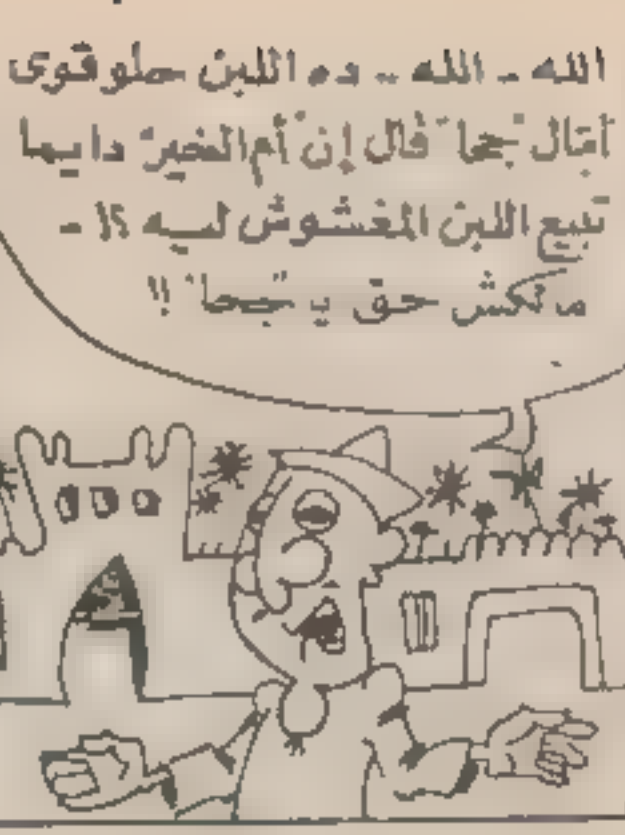 الله - الله .. ده اللبن حلو قوى
أمّال "جحا" قال إن "أم الخير" دايما
تبيع اللبن المغشوش ليه ؟! -
مالكش حق يا "جحا" !!